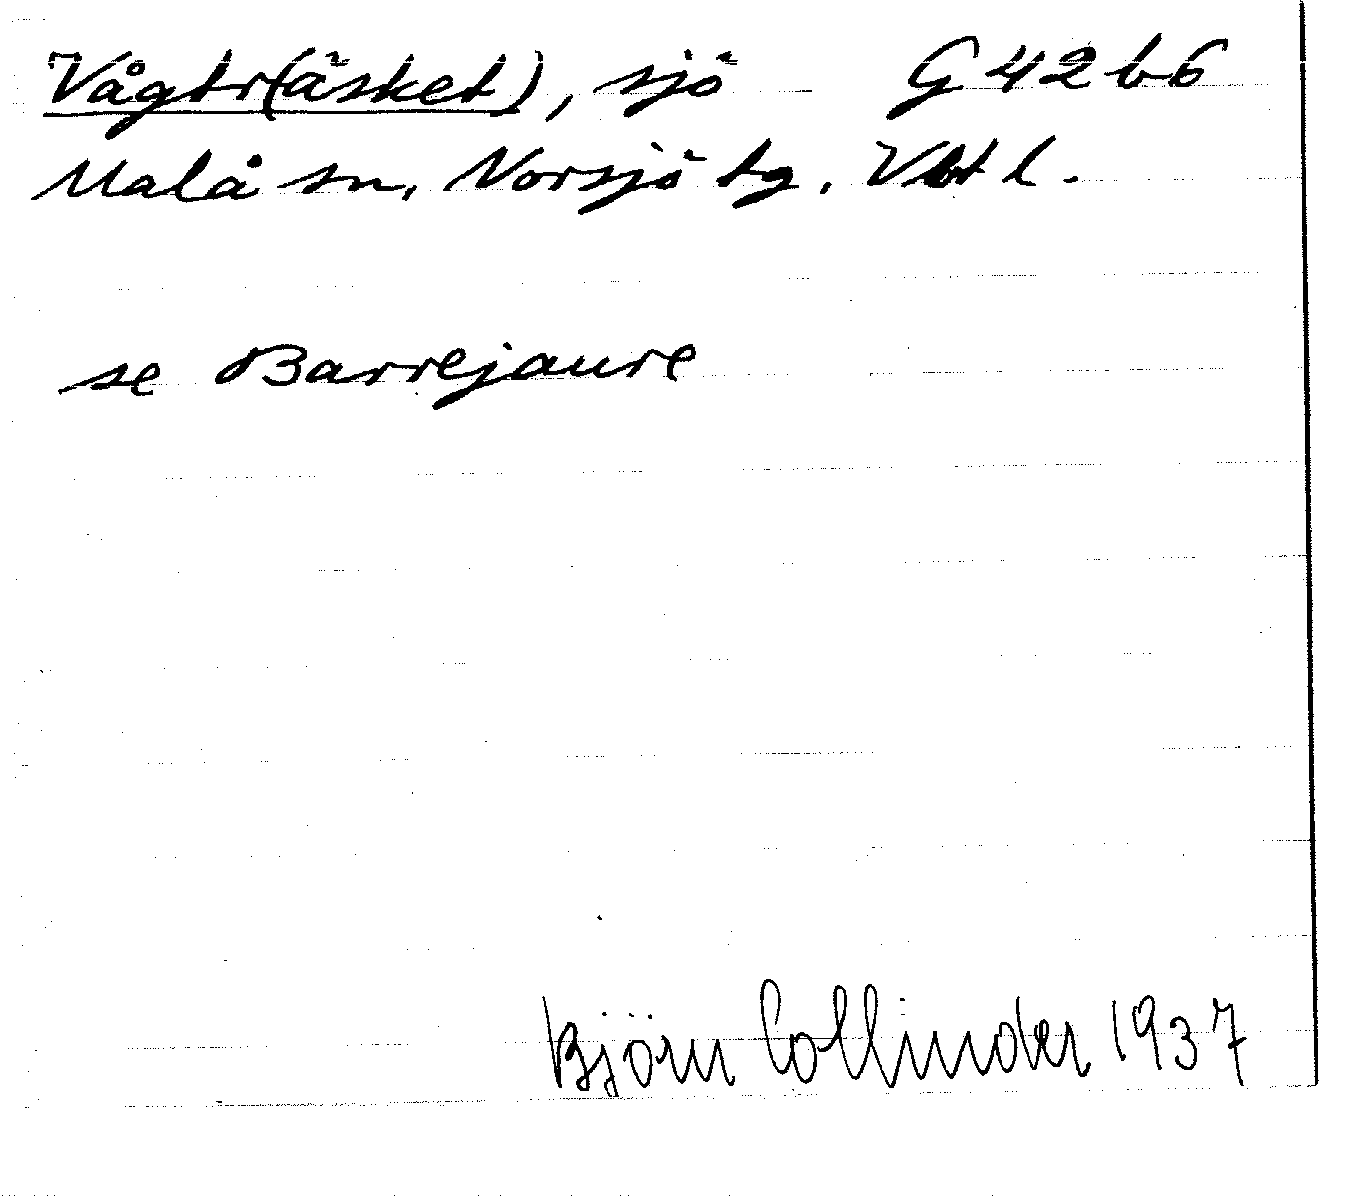 Vågtr(äsket), sjö G 42 b 6
Malå sn, Norsjö tg. Vbtl.
se Barrejaure
Björn Collinder 1937